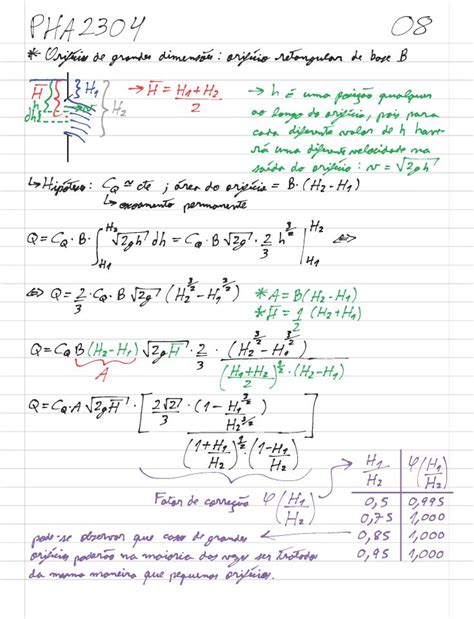 PHA2304 08
* Orifícios de grandes dimensões: orifício retangular de base B
H̅ h dh H₁ v H₂
→ H̅ = (H₁+H₂)/2
→ h é uma posição qualquer
ao longo do orifício, pois para
cada diferente valor de h have-
rá uma diferente velocidade na
saída do orifício: v = √2gh
↳ Hipótese: C_Q ≃ cte ; área do orifício = B·(H₂-H₁)
↳ escoamento permanente
Q = C_Q · B · ∫_{H₁}^{H₂} √2gh dh = C_Q · B √2g · 2/3 h^{3/2} |_{H₁}^{H₂} ⇔
⇔ Q = 2/3 · C_Q · B √2g (H₂^{3/2} - H₁^{3/2})
* A = B(H₂-H₁)
* H̅ = 1/2 (H₂+H₁)
Q = C_Q B(H₂-H₁) √2gH̅ · 2/3 · (H₂^{3/2} - H₁^{3/2}) / ((H₁+H₂)/2)^{1/2} · (H₂-H₁)
A
Q = C_Q·A √2gH̅ · [ 2√2/3 · (1 - H₁^{3/2}/H₂^{3/2}) / (1 + H₁/H₂)^{1/2} · (1 - H₁/H₂) ]
Fator de correção φ(H₁/H₂)
H₁/H₂ φ(H₁/H₂)
0,5 0,995
0,75 1,000
0,85 1,000
0,95 1,000
pode-se observar que caso de grandes
orifícios poderão na maioria das vezes ser tratados
da mesma maneira que pequenos orifícios.